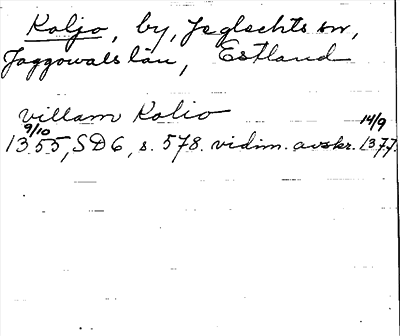 Koljo, by, Jeglechts sn,
Jaggowals län, Estland
villam Kolio
9/10 14/9
1355, SD6, s. 578. vidim. avskr. 1377.